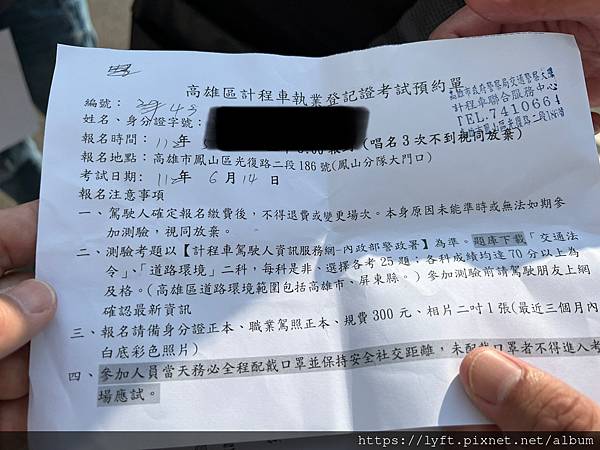 高雄區計程車執業登記證考試預約單
高雄市政府警察局交通警察大隊
計程車聯合服務中心
TEL:7410664
高雄市鳳山區光復路二段186號
編號：
43
姓名、身分證字號：
報名時間：112年
(唱名3次不到視同放棄)
報名地點：高雄市鳳山區光復路二段186號(鳳山分隊大門口)
考試日期：112年 6月14日
報名注意事項
一、駕駛人確定報名繳費後，不得退費或變更場次。本身原因未能準時或無法如期參
加測驗，視同放棄。
二、測驗考題以【計程車駕駛人資訊服務網-內政部警政署】為準。題庫下載「交通法
令」、「道路環境」二科，每科是非、選擇各考25題；各科成績均達70分以上為
及格。(高雄區道路環境範圍包括高雄市、屏東縣。) 參加測驗前請駕駛朋友上網
確認最新資訊
三、報名請備身分證正本、職業駕照正本、規費300元、相片二吋1張(最近三個月內
白底彩色照片)
四、參加人員當天務必全程配戴口罩並保持安全社交距離，未配戴口罩者不得進入考
場應試。
https://lyft.pixnet.net/album